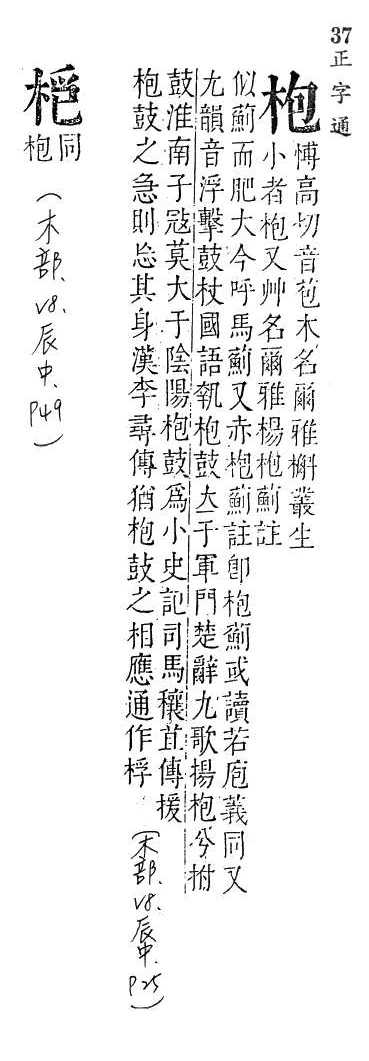 37 正字通
枹 愽高切音苞木名爾雅檞叢生
小者枹又艸名爾雅楊枹薊註
似薊而肥大今呼馬薊又赤枹薊註卽枹薊或讀若庖義同又
尢韻音浮擊鼓杖國語執枹鼓立于軍門楚辭九歌揚枹兮拊
鼓淮南子寇莫大于陰陽枹鼓爲小史記司馬穰苴傳援
枹鼓之急則忘其身漢李尋傳猶枹鼓之相應通作桴
(木部.v8.辰中.P25)
同
枹
(木部.v8.辰中.P49)